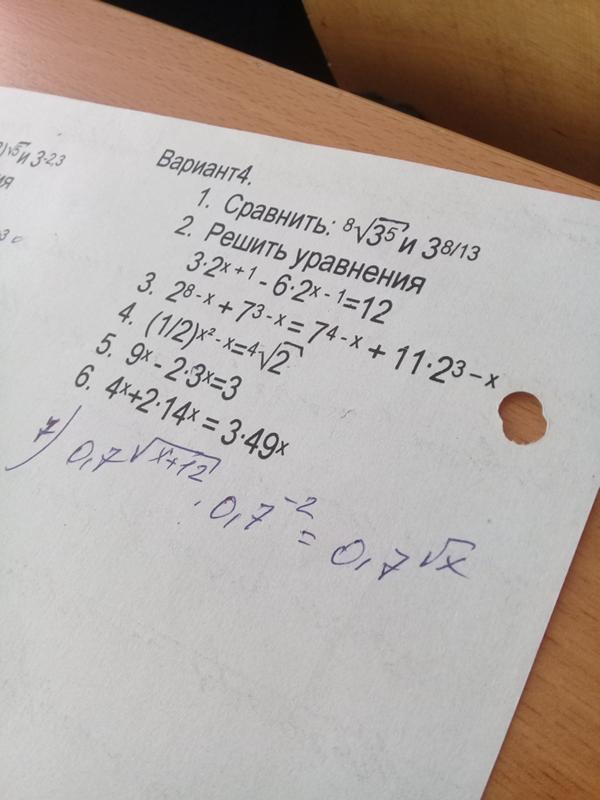 √5 и 3^-2,3
Вариант4.
1. Сравнить: ⁸√3⁵ и 3^8/13
2. Решить уравнения
3·2^x + 1 - 6·2^x - 1=12
3. 2^8 - x + 7^3 - x = 7^4 - x + 11·2^3 - x
4. (1/2)^x² - x=⁴√2
5. 9^x - 2·3^x=3
6. 4^x+2·14^x = 3·49^x
7) 0,7^√x+12 · 0,7^-2 = 0,7^√x